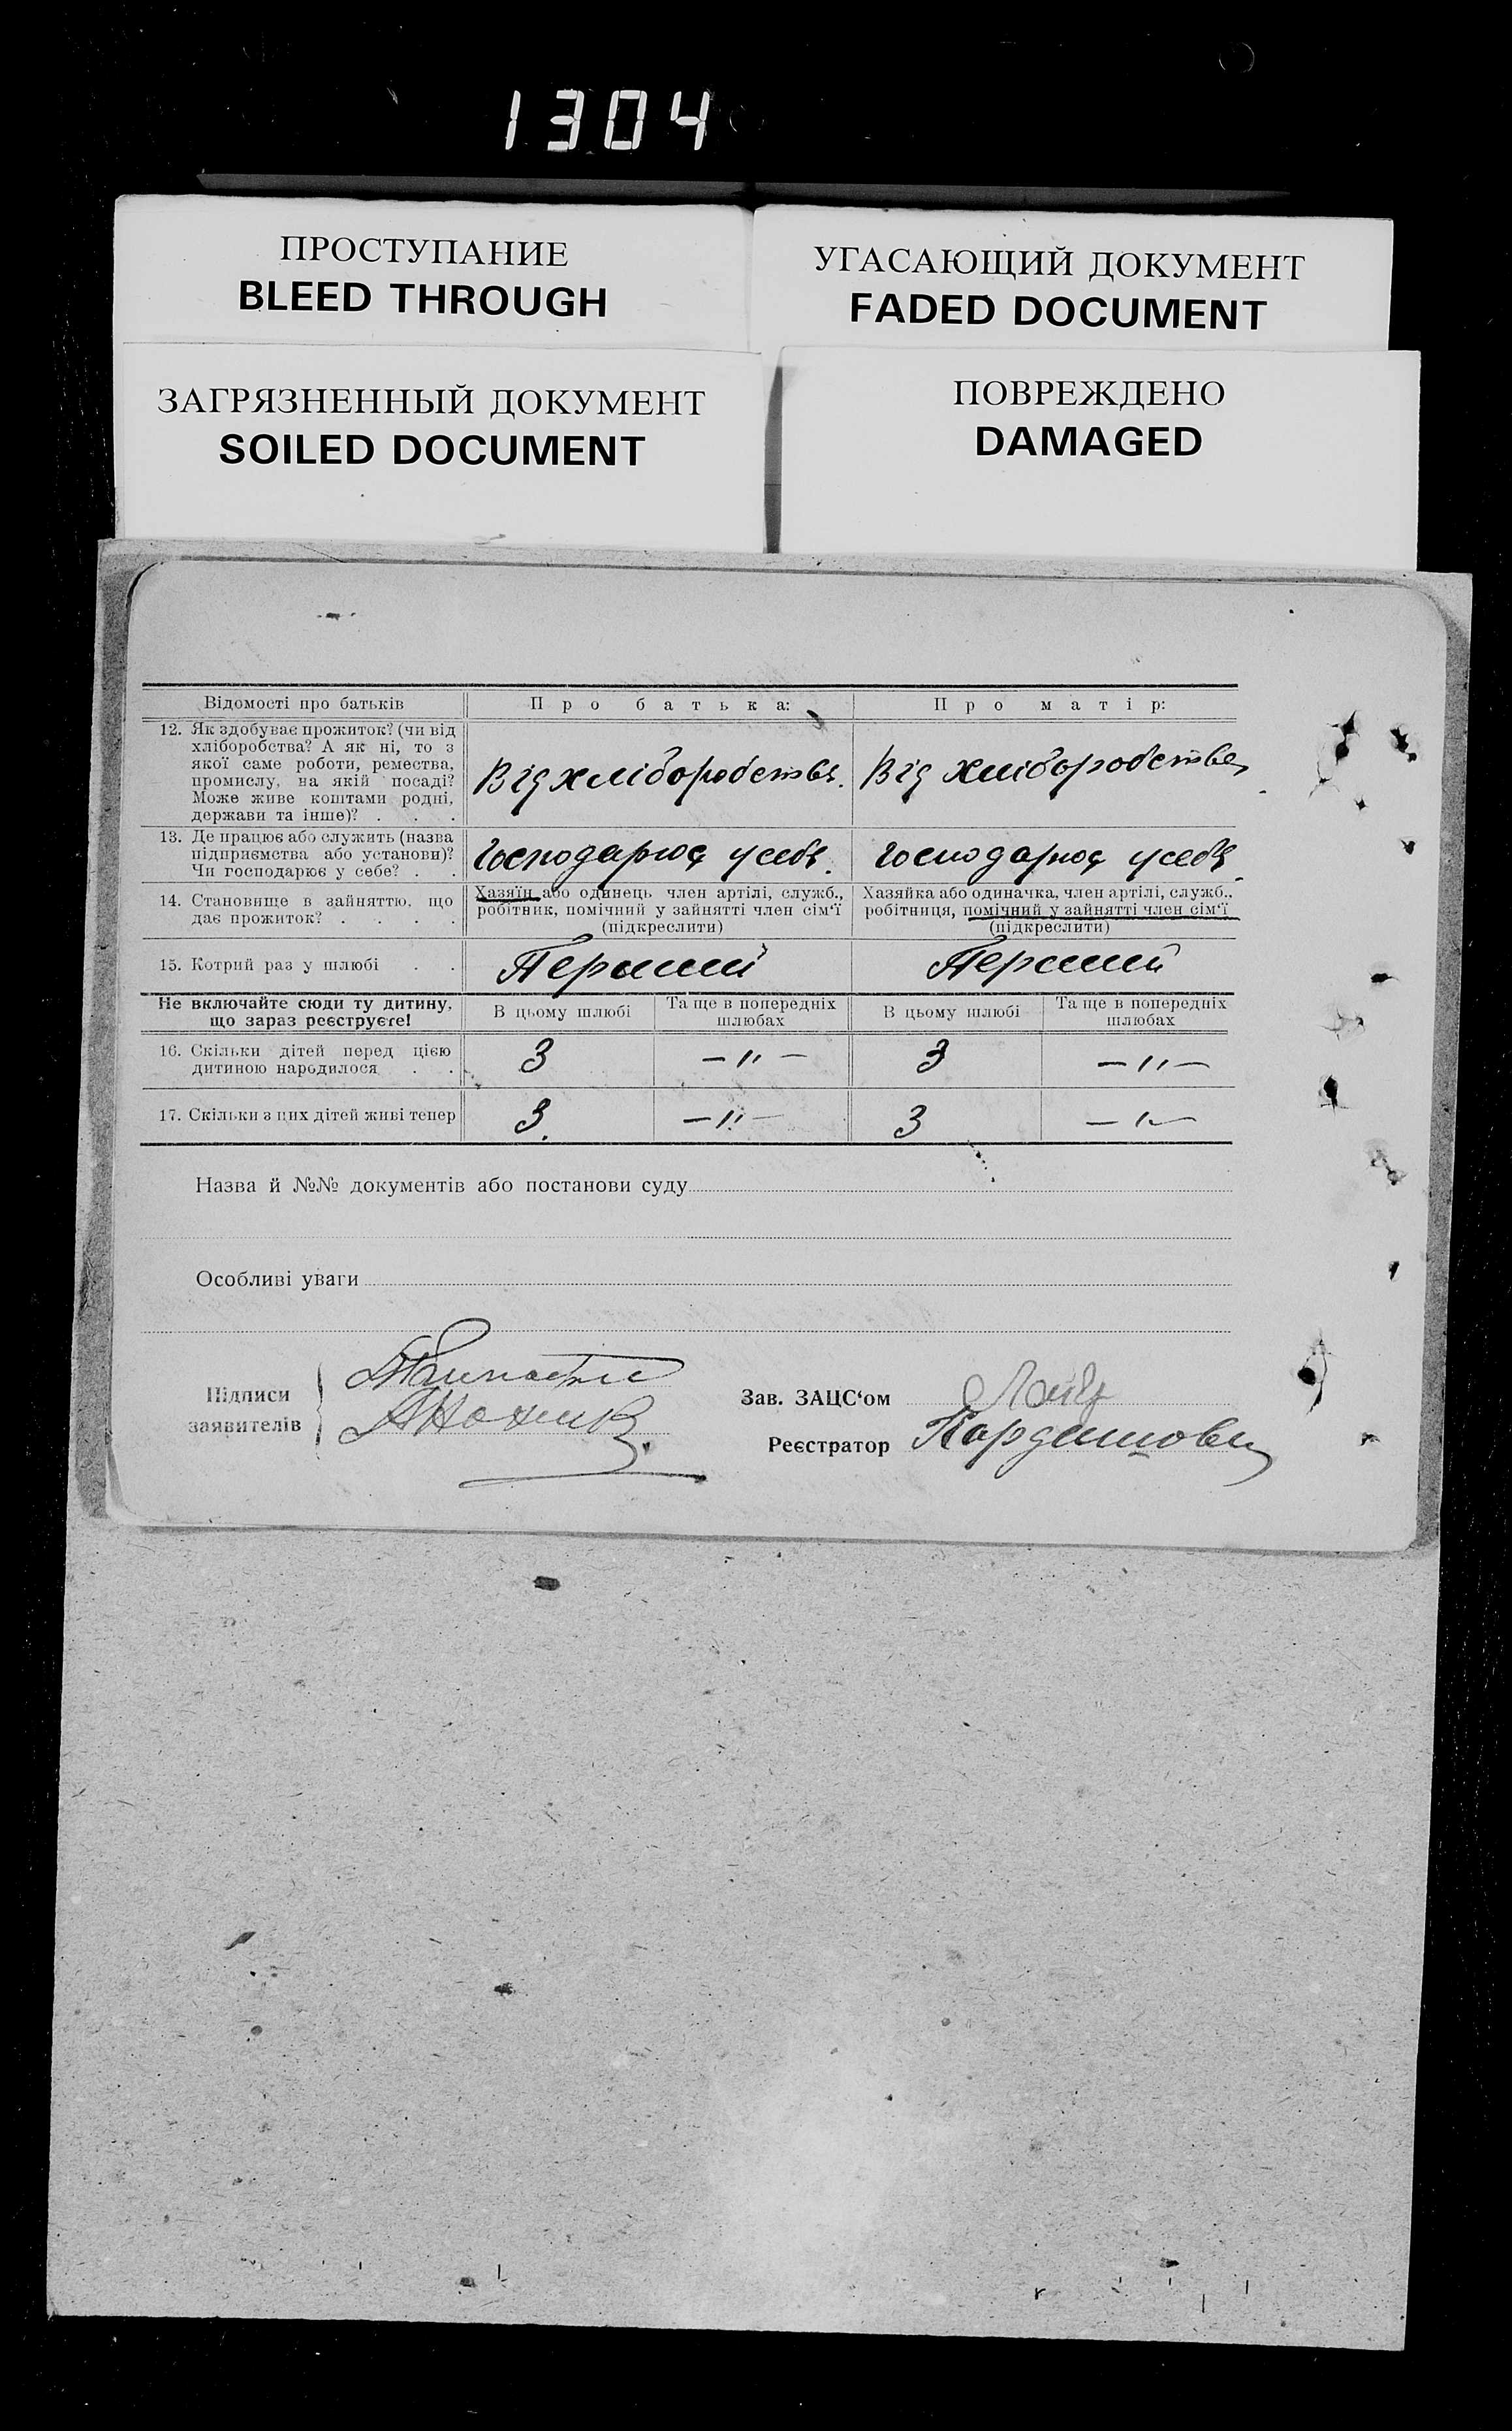 1304
ПРОСТУПАНИЕ
BLEED THROUGH
УГАСАЮЩИЙ ДОКУМЕНТ
FADED DOCUMENT
ЗАГРЯЗНЕННЫЙ ДОКУМЕНТ
SOILED DOCUMENT
ПОВРЕЖДЕНО
DAMAGED
Відомості про батьків
Про батька:
Про матір:
12. Як здобуває прожиток? (чи від
хліборобства? А як ні, то з
якої саме роботи, ремества,
промислу, на якій посаді?
Може живе коштами родні,
держави та інше)? . . .
Від хліборобства.
Від хліборобства
13. Де працює або служить (назва
підприємства або установи)?
Чи господарює у себе? . .
Господарює у себе.
Господарює у себе.
14. Становище в зайняттю, що
дає прожиток? . . . .
Хазяїн або одинець член артілі, служб.,
робітник, помічний у зайнятті член сім'ї
(підкреслити)
Хазяйка або одиначка, член артілі, служб.,
робітниця, помічний у зайнятті член сім'ї
(підкреслити)
15. Котрий раз у шлюбі . .
Перший
Перший
Не включайте сюди ту дитину,
що зараз реєструєте!
В цьому шлюбі
Та ще в попередніх
шлюбах
В цьому шлюбі
Та ще в попередніх
шлюбах
16. Скільки дітей перед цією
дитиною народилося . .
3
— " —
3
— " —
17. Скільки з цих дітей живі тепер
3.
— " —
3
— " —
Назва й №№ документів або постанови суду
Особливі уваги
Підписи
заявителів
Зав. ЗАЦС'ом
Реєстратор